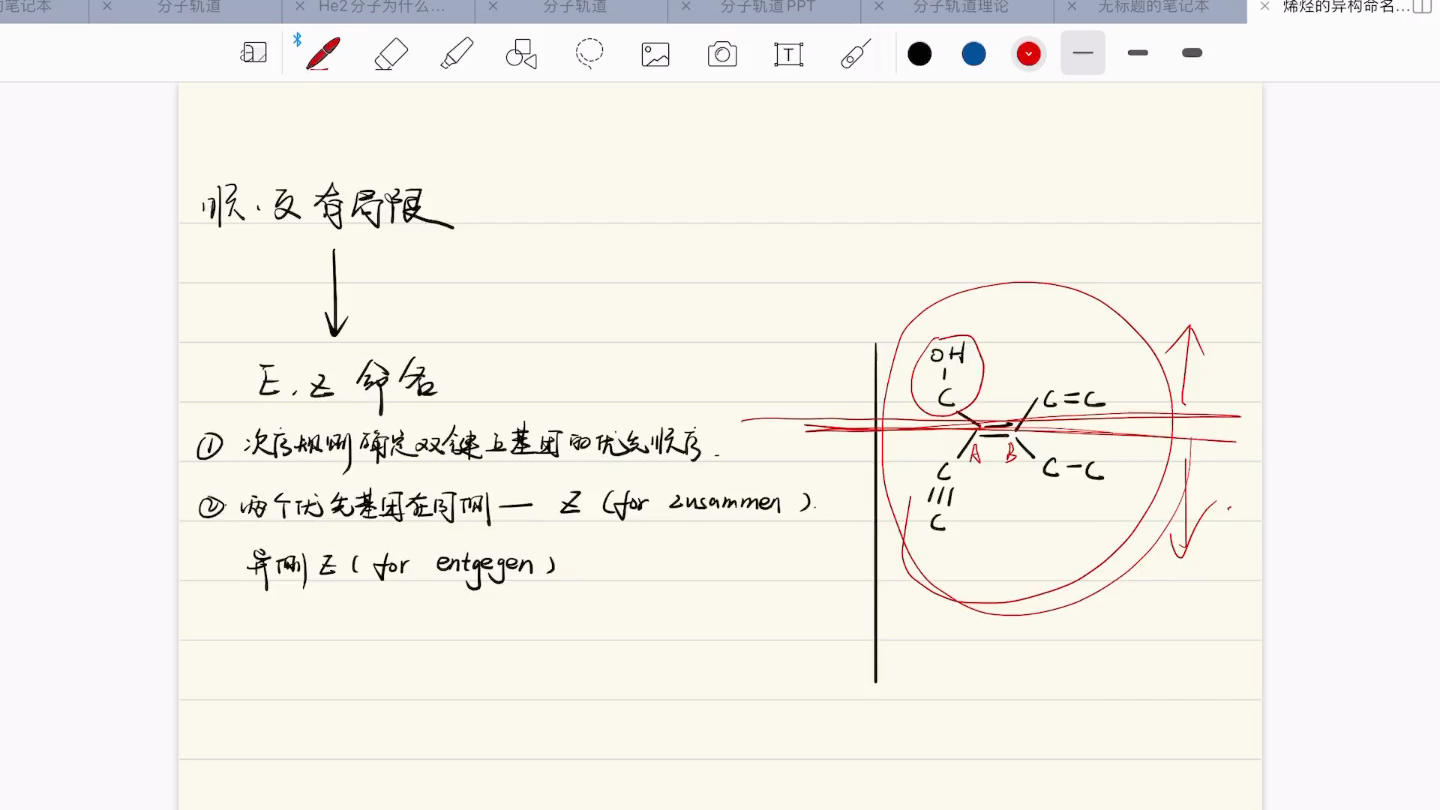 的笔记本 × 分子轨道 × He2分子为什么... × 分子轨道 × 分子轨道PPT × 分子轨道理论 × 无标题的笔记本 × 烯烃的异构命名...
T
顺、反有局限
E、Z 命名
① 次序规则确定双键上基团的优先顺序.
② 两个优先基团在同侧 — Z (for zusammen).
异侧 Z ( for entgegen )
OH
C
C=C
A B
C
C-C
C